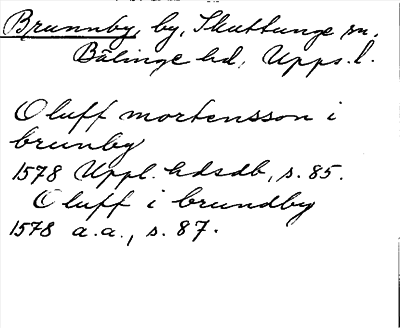 Brunnby, by, Skuttunge sn.
Bälinge hd, Upps. l.
Oluff mortensson i
brunby
1578 Uppl. hdsdb, s. 85.
Oluff i brundby
1578 a.a., s. 87.